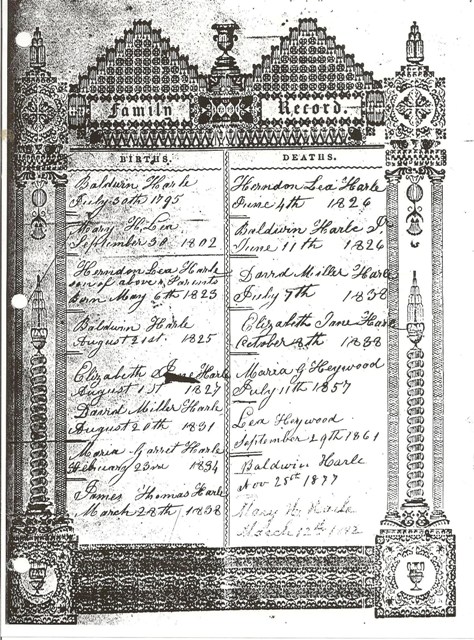 Family Record.
BIRTHS.
Baldwin Harle
July 30th 1795
Mary H. Lea
September 30 1802
Herndon Lea Harle
son of above Parents
Born May 6th 1823
Baldwin Harle
August 21st. 1825
Elizabeth Jane Harle
August 1st 1827
David Miller Harle
August 20th 1831
Maria Garret Harle
February 23rd 1834
James Thomas Harle
March 28th 1838
DEATHS.
Herndon Lea Harle
June 4th 1826
Baldwin Harle J.
June 11th 1826
David Miller Harle
July 7th 1838
Elizabeth Jane Harle
October 8th 1838
Maria G Heywood
July 11th 1857
Lea Heywood
September 29th 1861
Baldwin Harle
Nov 25th 1877
Mary H. Harle
March 12th